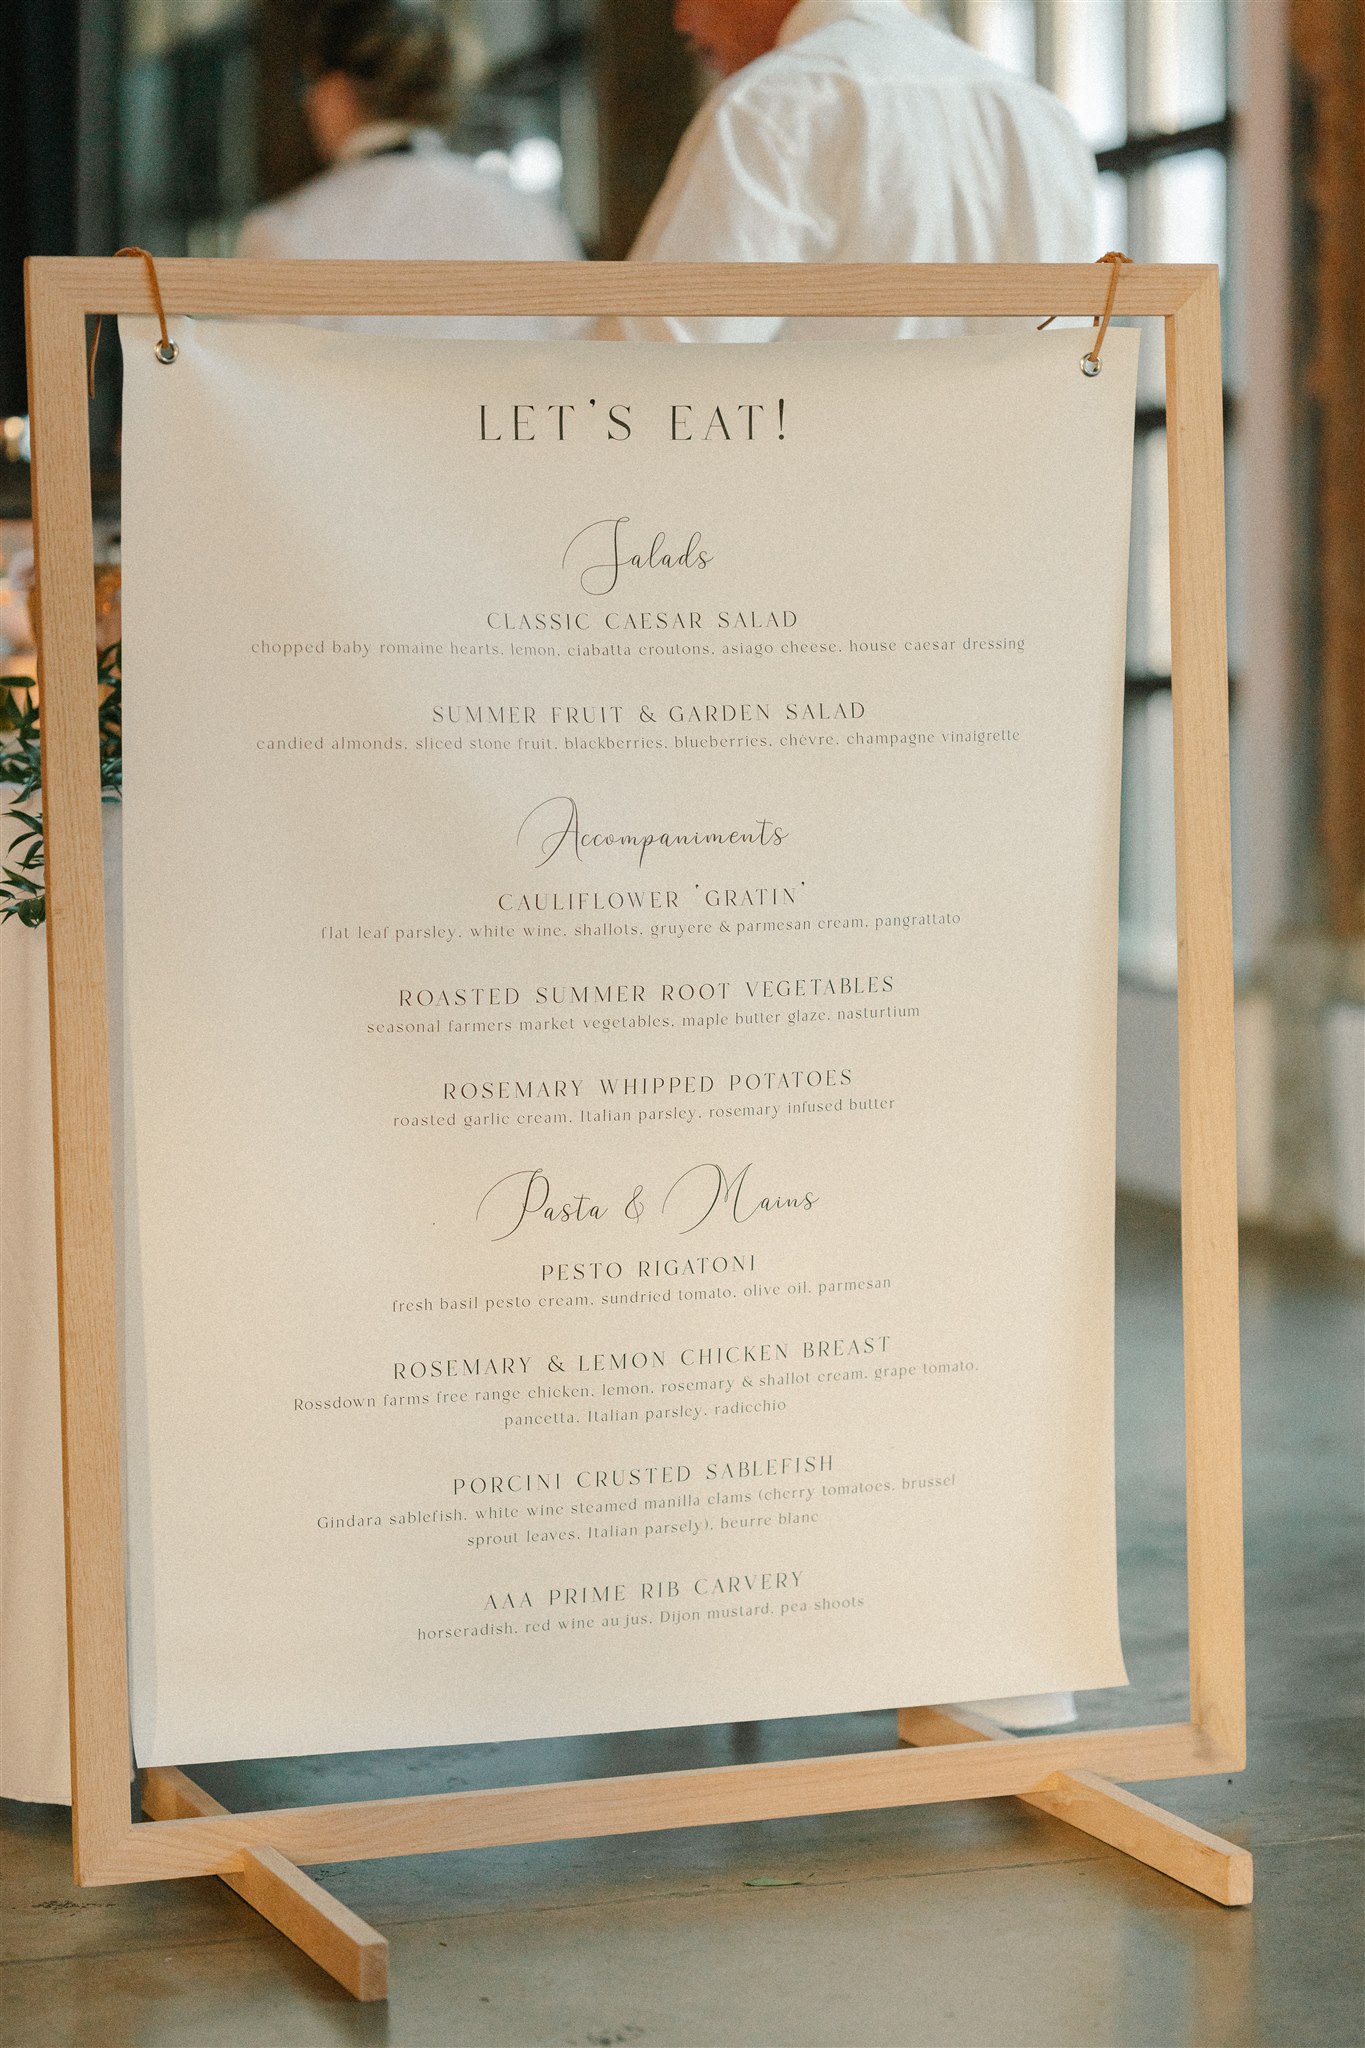 LET'S EAT!
Salads
CLASSIC CAESAR SALAD
chopped baby romaine hearts, lemon, ciabatta croutons, asiago cheese, house caesar dressing
SUMMER FRUIT & GARDEN SALAD
candied almonds, sliced stone fruit, blackberries, blueberries, chèvre, champagne vinaigrette
Accompaniments
CAULIFLOWER 'GRATIN'
flat leaf parsley, white wine, shallots, gruyere & parmesan cream, pangrattato
ROASTED SUMMER ROOT VEGETABLES
seasonal farmers market vegetables, maple butter glaze, nasturtium
ROSEMARY WHIPPED POTATOES
roasted garlic cream, Italian parsley, rosemary infused butter
Pasta & Mains
PESTO RIGATONI
fresh basil pesto cream, sundried tomato, olive oil, parmesan
ROSEMARY & LEMON CHICKEN BREAST
Rossdown farms free range chicken, lemon, rosemary & shallot cream, grape tomato,
pancetta, Italian parsley, radicchio
PORCINI CRUSTED SABLEFISH
Gindara sablefish, white wine steamed manilla clams (cherry tomatoes, brussel
sprout leaves, Italian parsely), beurre blanc
AAA PRIME RIB CARVERY
horseradish, red wine au jus, Dijon mustard, pea shoots